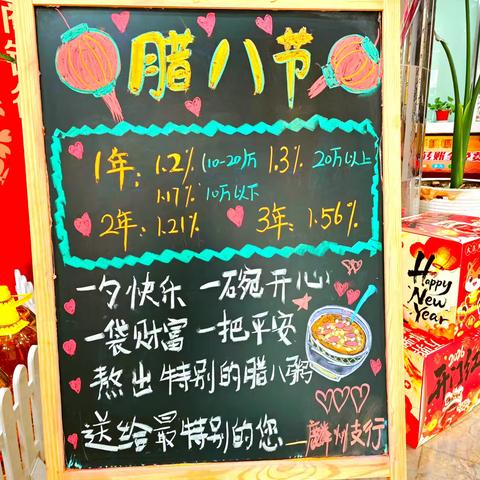 腊八节
1年: 1.2% (10-20)万 1.3% 20万以上
1.17% 10万以下
2年: 1.21% 3年: 1.56%
一夕快乐 一碗开心
一袋财富 一把平安
熬出特别的腊八粥
送给最特别的您
麟州支行
HAPPY
NEW
YEAR
2026
开门红